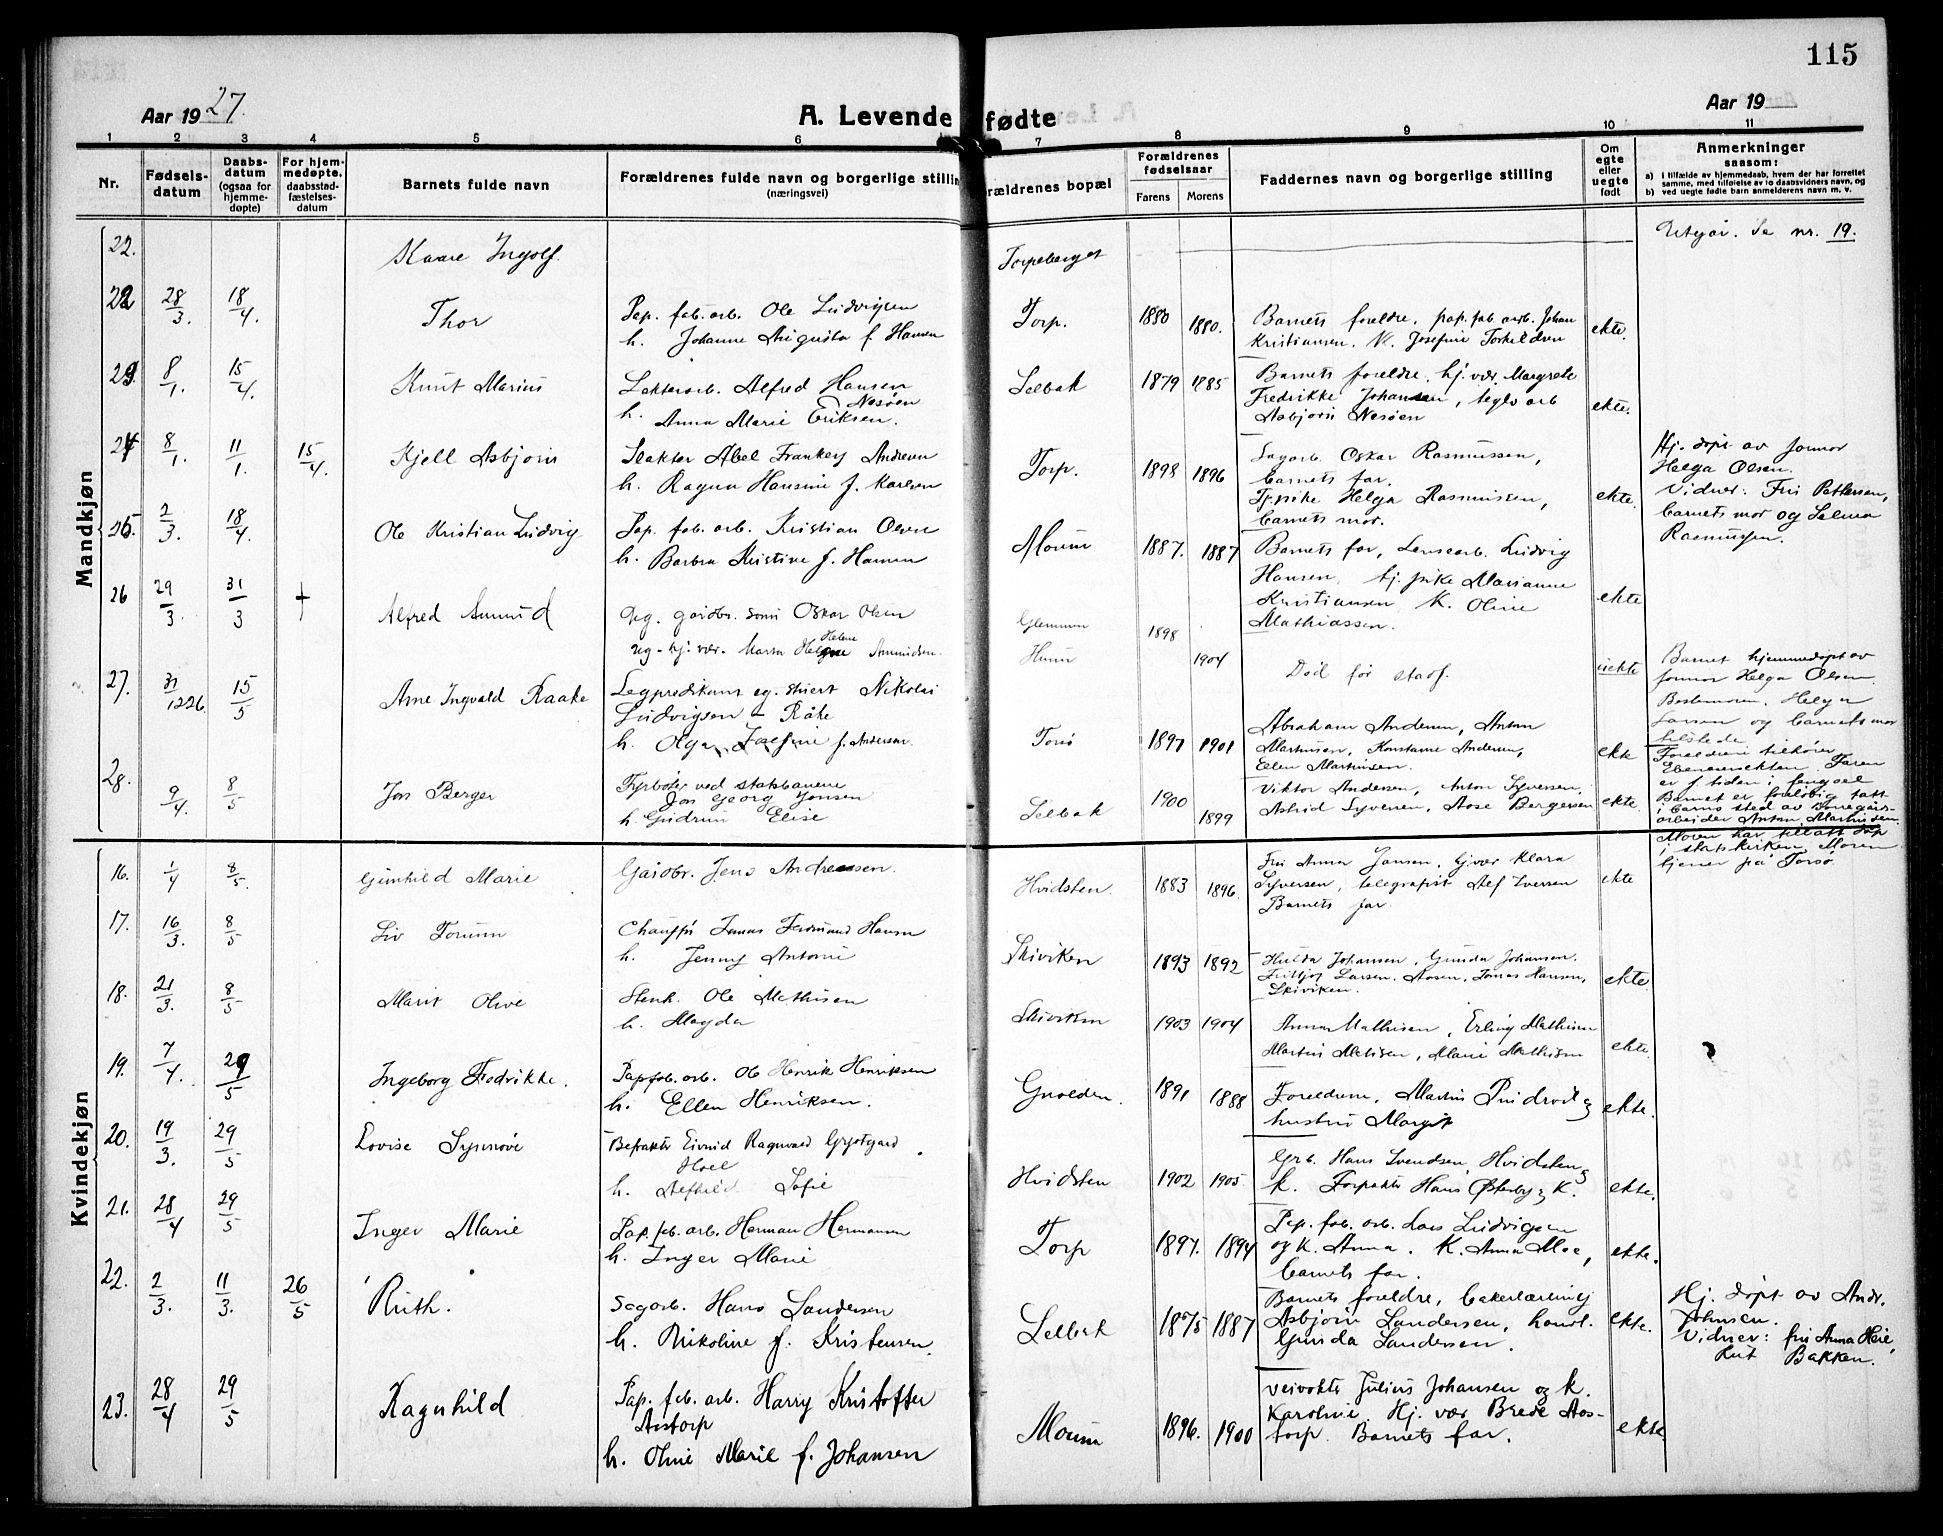 115
Aar 1927.
A. Levende fødte
Aar 19
1 2 3 4 5 6 7 8 9 10 11
Nr.
Fødsels-
datum
Daabs-
datum
(ogsaa for
hjemme-
døpte)
For hjem-
medøpte,
daabsstad-
fæstelses-
datum
Barnets fulde navn
Forældrenes fulde navn og borgerlige stillin
(næringsvei)
rældrenes bopæl
Forældrenes
fødselsaar
Farens Morens
Faddernes navn og borgerlige stilling
Om
egte
eller
uegte
født
Anmerkninger
saasom:
a) i tilfælde av hjemmedaab, hvem der har forrettet
samme, med tilføielse av to daabsvidners navn, og
b) ved uegte fødte barn anmelderens navn m. v.
Mandkjøn
22. Kaare Ingolf. Torpeberget Utgår. Se nr. 19.
22 28/3. 18/4. Thor
Pap. fab. arb. Ole Ludvigsen
h. Johanne Augusta f. Hansen
Torp. 1880 1880.
Barnets foreldre, pap. fab. arb. Johan
Kristiansen. K. Josefine Torkildsen
ekte.
23. 8/1. 15/4. Knut Marius
Alfred Hansen
Nesøen
h. Anna Marie Eriksen.
Selbak 1879 1885
Barnets foreldre, hj. vær. Margrete
Fredrikke Johansen, teglv. arb
Asbjørn Nesøen
ekte.
24 8/1. 11/1. 15/4. Kjell Asbjørn
Slakter Abel Andersen
h. Ragna Hansine f. Karlsen
Torp. 1898 1896
Sagarb. Oskar Rasmussen,
barnets far.
Frk. pike Helga Rasmussen,
barnets mor.
ekte.
Hj. døpt av jormor
Helga Olsen.
Vidner: Fru Pettersen,
barnets mor og Selma
Rasmussen.
25. 2/3. 18/4. Ole Kristian Ludvig
Pap. fab. arb. Kristian Olsen
h. Barbra Kristine f. Hansen
Moum 1887. 1887
Barnets far, Lensearb. Ludvig
Hansen, hj. pike Marianne
Kristiansen, K. Oline
Mathiassen.
ekte
26 29/3. 31/3 + Alfred Amund
Ug. gårdbr. sønn Oskar Olsen
ug. hj. vær. Marta Helene Amundsen.
Glemmen 1898
Hunn 1904
Død før stadf.
uekte
Barnet hjemmedøpt av
jormor Helga Olsen.
Bestemoren, Helga
Larsen og barnets mor
tilstede
27. 31/12 26. 15/5 Arne Ingvald Raake
Legpredikant og skiert Nikolai
Ludvigsen - Råke
h. Olga Josefine f. Andersen.
Torsø 1897 1901
Abraham Andersen, Anton
Martinsen, Konstanse Andersen,
Ellen Martinsen.
ekte
Foreldrene tilhører
Ebenesersekten. Faren
er f. tiden i fengsel
Barnet er foreløbig satt
i barns sted av Bruregårs-
arbeider Anton Martinsen
Moren har tillatt dåp
i statskirken. Moren
tjener på Torsø.
28. 9/4. 8/5 Jon Berger
Fyrbøter ved statsbanene
Jon Georg Jonsen
h. Gudrun Elise
Selbak 1900 1899
Viktor Andersen, Anton Syversen,
Astrid Syversen, Aase Bergersen
ekte.
Kvindekjøn
16. 1/4 8/5. Gunhild Marie
Gårdbr. Jens Andreassen.
Hvidsten. 1883 1896.
Fru Anna Jansen, hj. vær Klara
Syversen, telegrafist Alf Iversen
Barnets far.
ekte
17. 16/3. 8/5 Liv Torunn
Chauffør Jonas Ferdinand Hansen
h. Jenny Antonie
Skiviken 1893 1892
Hulda Johansen, Gunda Johansen.
Fritjof Larsen, Aasen, Jonas Hansen,
Skiviken.
ekte.
18. 21/3. 8/5 Marit Olive
Stenh. Ole Mathisen
h. Magda
Skiviken 1903 1904
Anna Mathisen, Erling Mathisen
Martin Matisen, Marie Mathisen
ekte.
19. 7/4. 29/5 Ingeborg Fredrikke.
Papfab. arb. Ole Henrik Henriksen
h. Ellen Henriksen.
Gralden 1891 1888
Foreldrene, Martin Pindrød og
hustru Margit
ekte.
20. 19/3. 29/5 Lovise Synnøve
Befrakter Eivind Ragnvald Grjotgard
Hoel
h. Alfhild Sofie
Hvidsten 1902 1905
Grb. Hans Svendsen, Hvidsten og
K. Forpakter Hans Østerby og K.
ekte.
21. 28/4 29/5 Inger Marie
Pap. fab. arb. Herman Hermansen
h. Inger Marie
Torp 1897. 1894
Pap. fab. arb. Lars Ludvigsen
og K. Anna. K. Anna Moe,
barnets far.
ekte.
22. 2/3. 11/3. 26/5 Ruth.
Sagarb. Hans Sandersen
h. Nikoline f. Kristensen.
Selbak 1875 1887
Barnets foreldre, bakerlærling
Asbjørn Sandersen, handl.
Gunda Sandersen.
ekte.
Hj. døpt av Andr.
Johnsen.
Vidner: fru Anna Heie,
Rut Bakken.
23. 28/4 29/5 Ragnhild
Pap. fab. arb. Harry Kristoffer
Aastorp
h. Oline Marie f. Johansen
Moum 1896. 1900
Veivokter Julius Johansen og K.
Karoline. Hj. vær Brede Aas-
torp. Barnets far.
ekte.